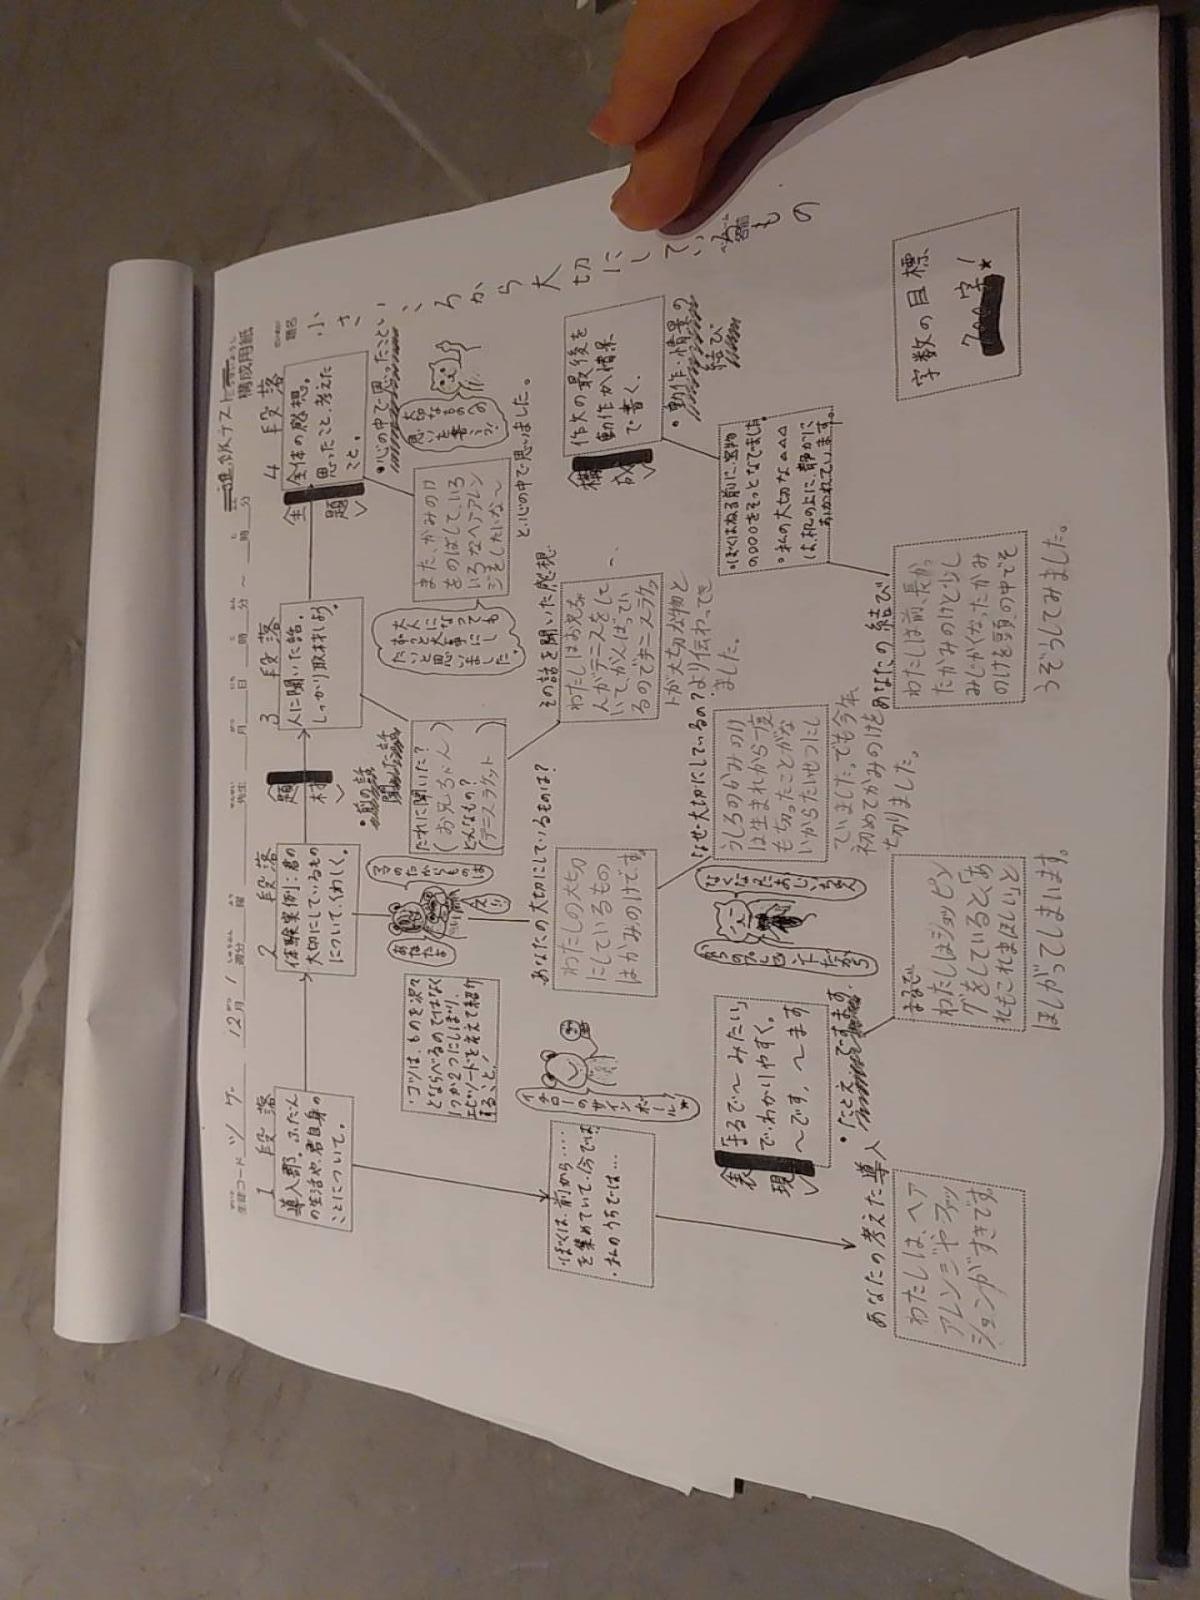 進級テスト
構成用紙
題名
小さいころから大切にしているもの
生徒コード ツケ
12月 1週分 曜 先生 月 日 時 分 ～ 時 分
1段落
導入部。ふだん
の生活や君自身の
ことについて。
2段落
体験実例：君の
大切にしているもの
について、くわしく。
題材
3段落
人に聞いた話。
しっかり取材しよう。
4段落
全体の感想。
思ったこと、考えた
こと。
主題
・心の中で思ったこと
・前の話
聞いた話
・コツは、ものを次々
とならべるのではなく
1つか2つにしぼり、
エピソードを交えて紹介
すること！
あなたは
ママのたからものは
だれに聞いた？
（お兄ちゃん）
どんなもの？
（テニスラケット）
大人になっても
大事にし
たいと思いました。
また、かみのけ
をのばして、いろ
いろなヘアアレン
ジをしたいな〜
と、心の中で思いました。
大切なものへの
思いを書こう！
イチローのサインボール？
・ぼくは、前から‥‥
を集めていて、今では、
・私のうちでは…
あなたの大切にしているものは？
わたしの大切
にしているもの
はかみのけです。
その話を聞いた感想
わたしはお兄ちゃ
んがテニスをして
いて、がんばってい
るのでテニスラケッ
トが大切な物と
より伝わってき
ました。
構成
作文の最後を
動作か情景
で書く。
・動作・情景の
結び
表現
「まるで〜みたい」
で、わかりやすく。
〜です、〜ます
・「たとえ
ですます
なくなったおじいちゃん
からのプレゼントだから
なぜ大切にしているの？
うしろのかみのけ
は生まれから一度
も切ったことがな
いからたいせつにし
ていました。でも今年
初めてかみのけを
切りました。
・ぼくはねる前に、宝物
の○○○をそっとなでました。
・私の大切な△△△
は、机の上に、静かに
おかれています。
あなたの考えた導入
わたしは、ヘア
アレンジやファッ
ションがすきです。
まるで
わたしはショッピン
グをしていると「あ
れもこれもほしい」と
ほしがってしまいます。
あなたの結び
わたしは前、長かっ
たかみのけと少し
みじかくなったかみ
のけを頭の中でそ
うぞうしてみました。
字数の目標
700字！